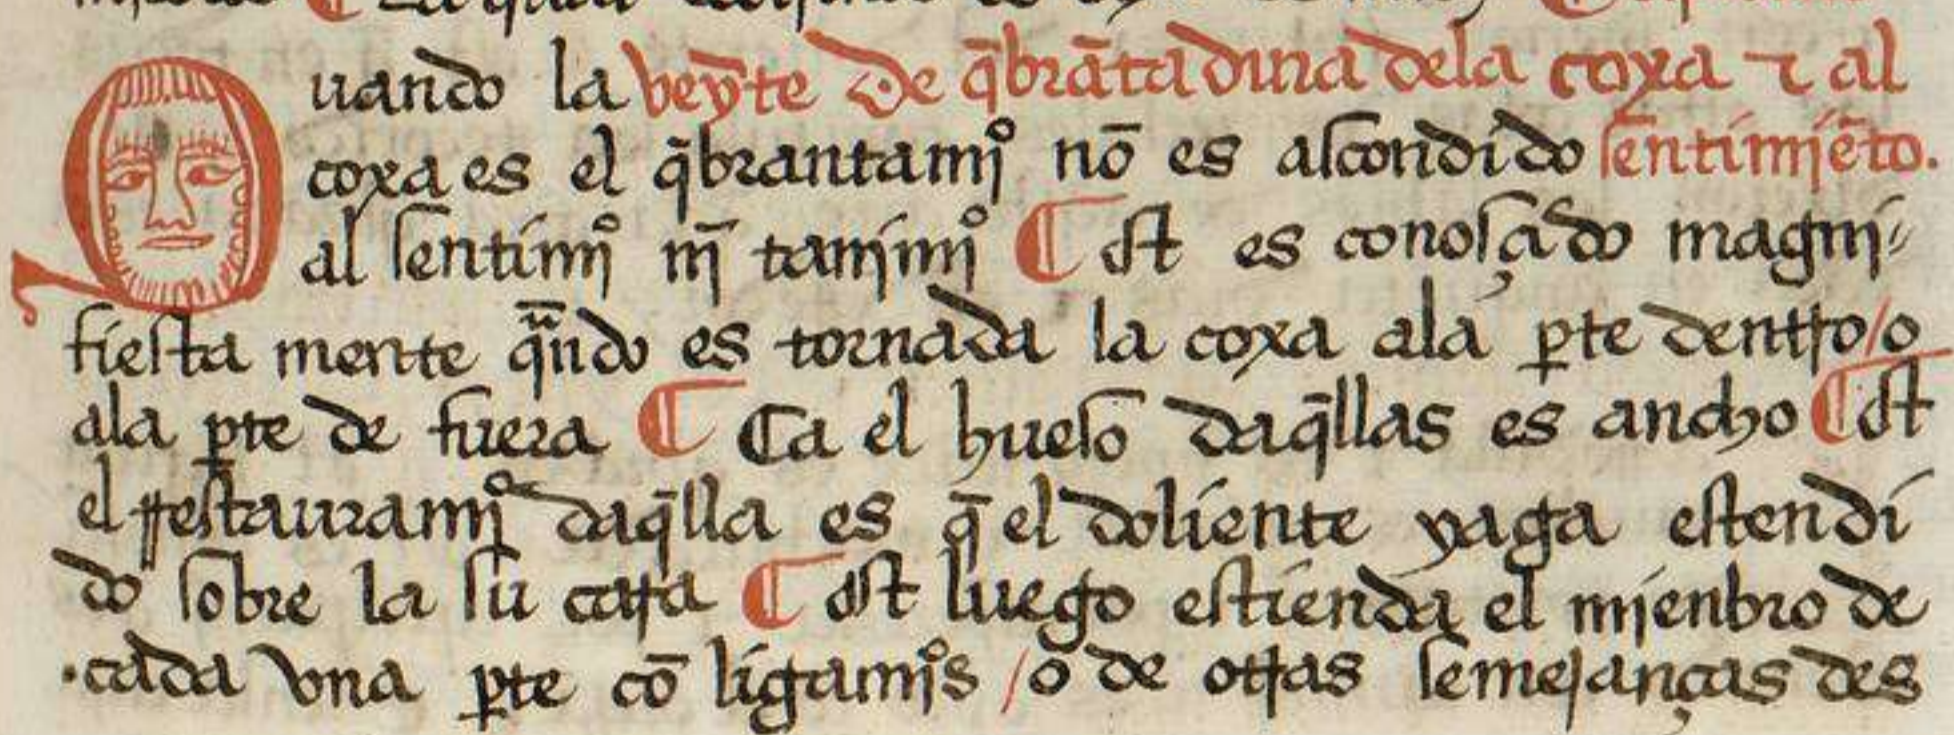 Quando la veȳte de q̄brātadura dela coxa ⁊ al
coxa es el q̄brantamjº nō es ascondido sentimjēto.
al sentimjº nj̄ tanimjº ¶ ⁊ es conosçido magni-
fiesta mente qn̄do es tornada la coxa ala ꝑte dentro / o
ala ꝑte de fuera ¶ Ca el hueso daq̄llas es ancho ¶ ⁊
el rrestauramjº daq̄lla es q̄ el doliente yaga estendi
do sobre la su cara ¶ ⁊ luego estienda el mjenbro de
·cada vna ꝑte cō ligamjºs / o de otras semejanças des